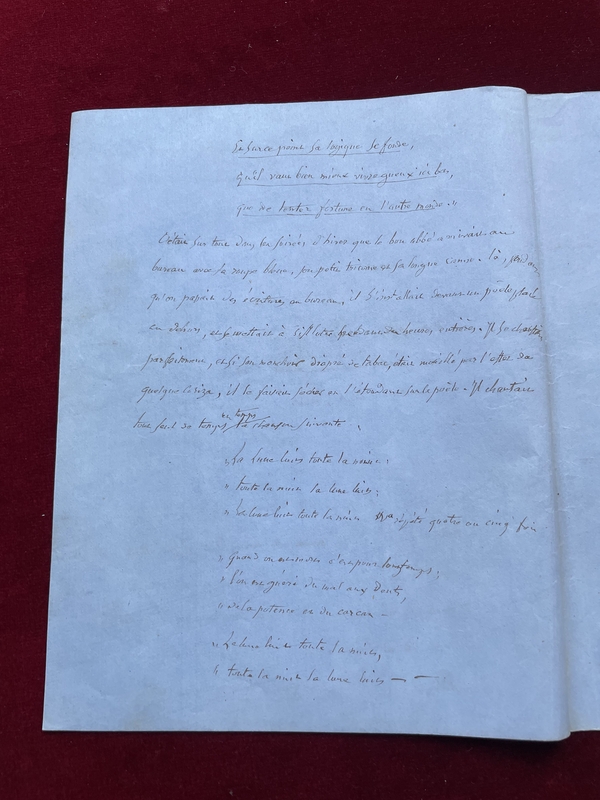 Sur ce point sa logique se fonde,
qu'il vaut bien mieux vivre gueux ici bas,
que de tenter fortune en l'autre monde.
C'était surtout dans les soirées d'hiver que le bon abbé arrivait au
bureau avec la soupe bleue, son petit tricorne et sa longue canne. Là,
qu'on papier des écritures au bureau, il s'installait devant un poële placé
en dehors, et se mettait à siffloter heures entières. Il se chauffait
parfaitement, et si son mouchoir diapré de tabac, était mouillé par l'effet de
quelque il le faisait sécher en l'étendant sur le poële. Il chantait
tout seul de temps en temps la chanson suivante :
"La lune luit toute la nuit :
" toute la nuit la lune luit :
" La lune luit toute la nuit répété quatre ou cinq fois
" Quand on c'est pour longtemps ;
" l'on me guérit du mal aux Dents,
" de la potence ou du carcan –
" La lune luit toute la nuit,
" toute la nuit la lune luit — —